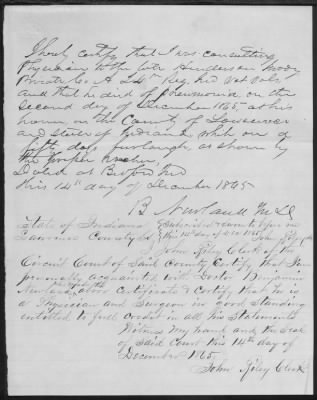 I hereby certify that I was consulting
Physician to the late Henderson Moody
Private Co. A 24th Reg. Ind Vet Vols.
and that he died of pneumonia on the
second day of December 1865 at his
home, in the County of Lawrence
and state of Indiana while on a
fifty days furlough, as shown by
the proper voucher,
Dated at Bedford Ind
this 14th day of December 1865
B Newland M.D.
State of Indiana
Lawrence County SS
Subscribed & sworn to before me
this 14th day of Dec 1865
John Riley Clk
I John Riley Clerk of the
Circuit Court of Said County Certify that I am
personally acquainted with Doctor Benjamin
Newland above Certificate & Certify that he is
a Physician and Surgeon in good Standing
entitled to full credit in all his Statements
Witness My hand and the Seal
of Said Court this 14th day of
December 1865.
John Riley Clerk